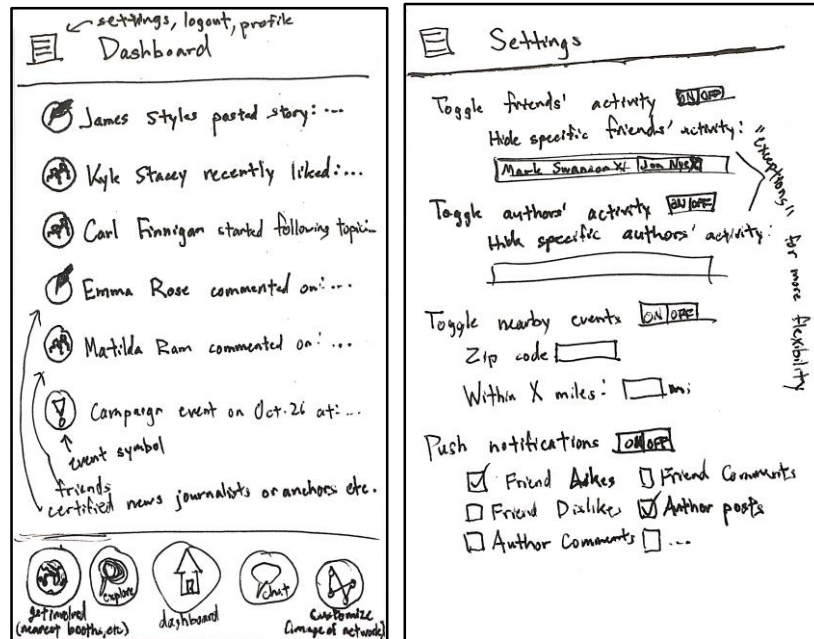 settings, logout, profile
Dashboard
James Styles posted story: ...
Kyle Stacey recently liked: ...
Carl Finnigan started following topic: ...
Emma Rose commented on: ...
Matilda Ram commented on: ...
Campaign event on Oct. 26 at: ...
event symbol
friends
certified news journalists or anchors etc.
get involved
(nearest booths, etc)
explore
dashboard
chat
customize
(image of network)
Settings
Toggle friends' activity ON OFF
Hide specific friends' activity:
Mark Swanson X Jon Nye X
Toggle authors' activity ON OFF
Hide specific authors' activity:
"exceptions" for more flexibility
Toggle nearby events ON OFF
Zip code
Within X miles: mi
Push notifications ON OFF
Friend Likes Friend Comments
Friend Dislikes Author posts
Author Comments ...